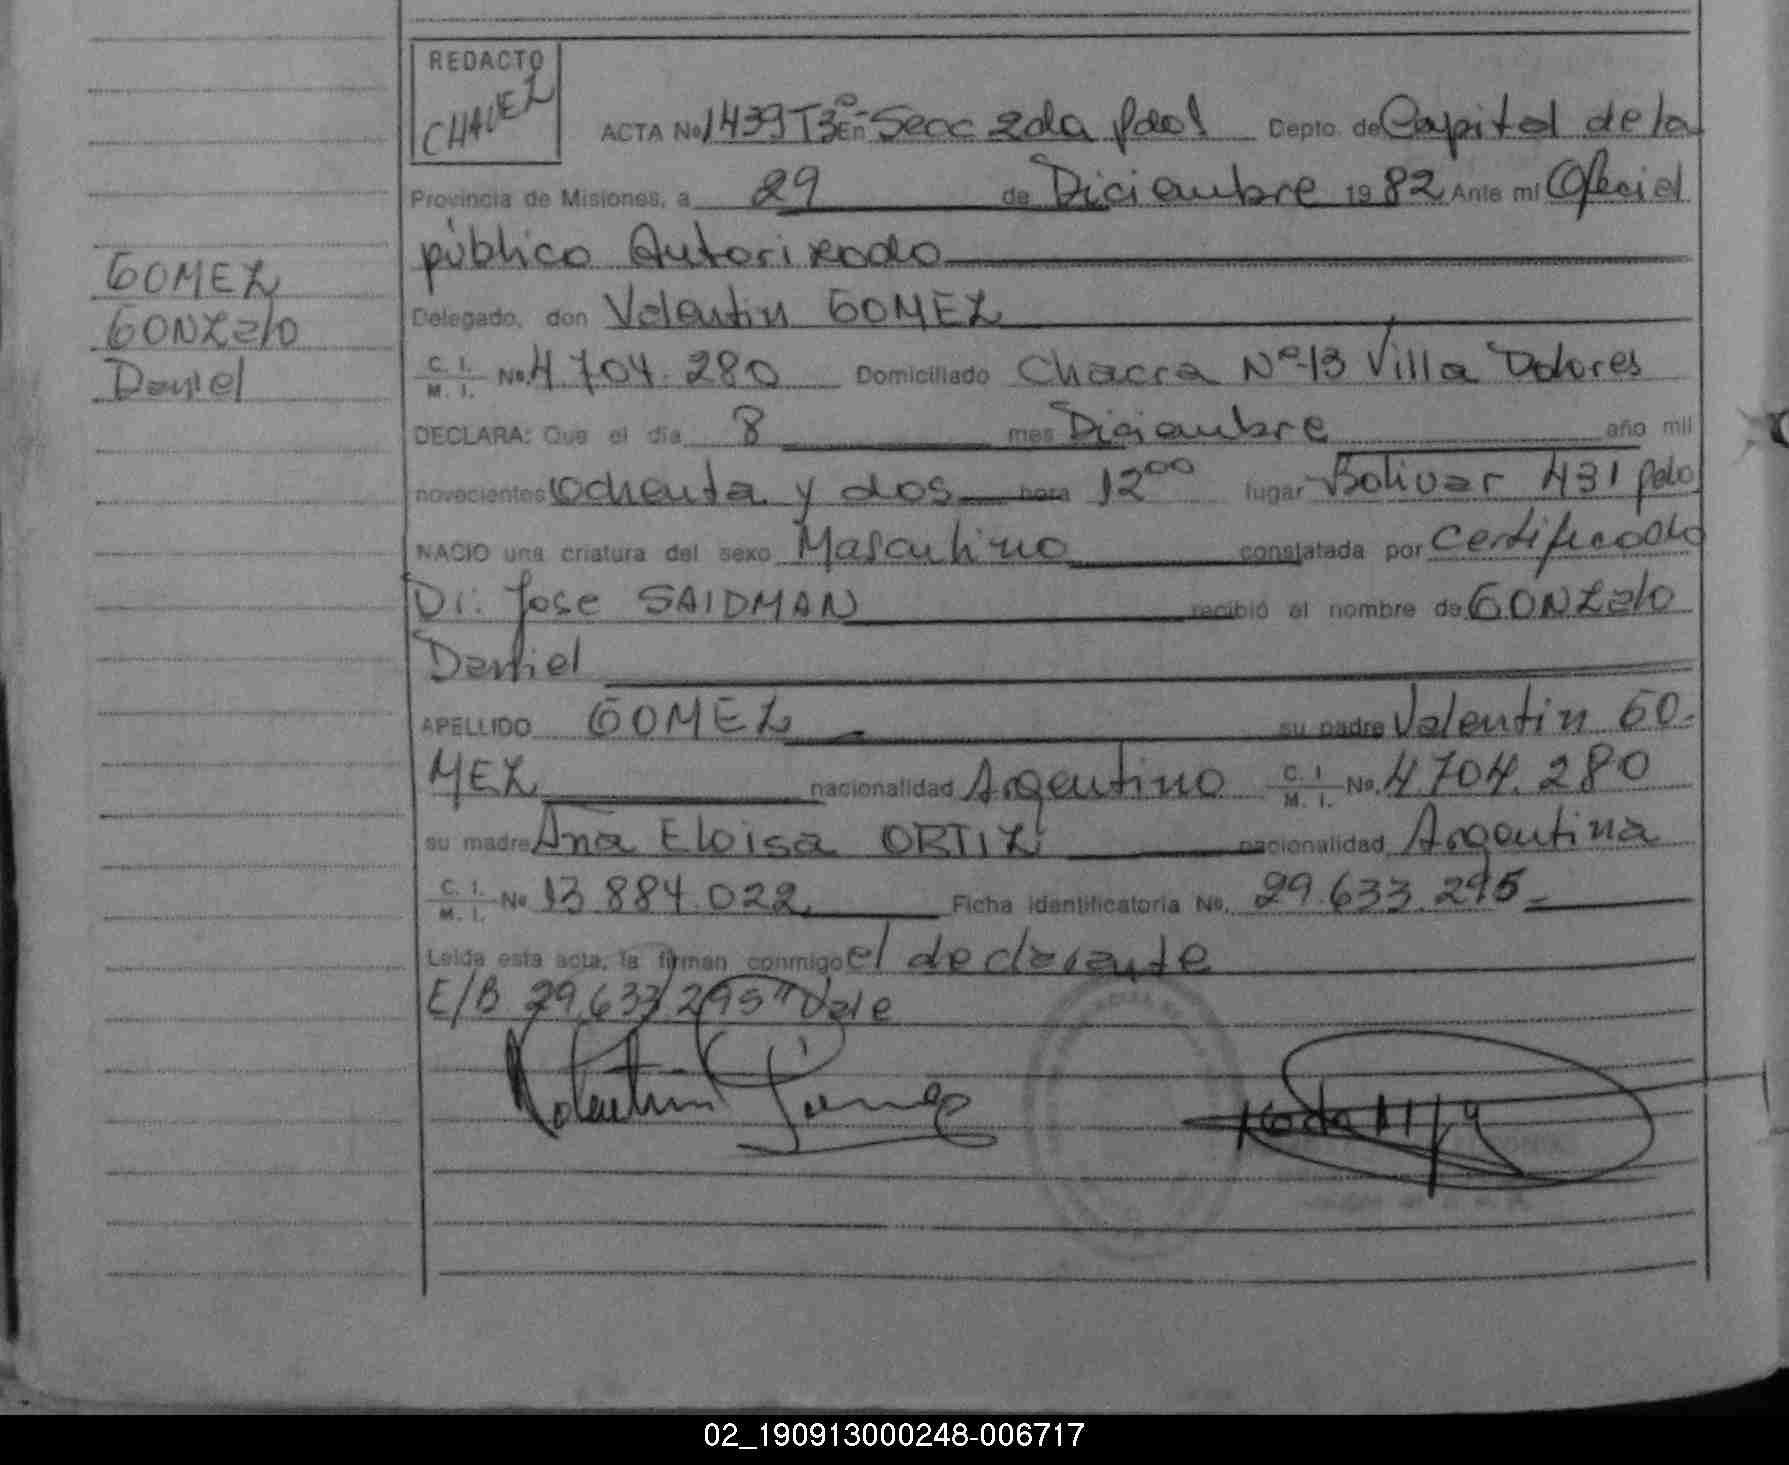 REDACTO
CHAVEZ
ACTA No 1439 T3º En Secc 2da Pdas Depto. de Capital de la
Provincia de Misiones, a 29 de Diciembre 1982 Ante mi Oficial
público Autorizado
Delegado, don Valentin GOMEZ
C. I. M. I. No. 4.704.280 Domiciliado Chacra Nº 13 Villa Dolores
DECLARA: Que el día 8 mes Diciembre año mil
novecientos ochenta y dos hora 12 00 lugar Bolivar 431 Pdas
NACIO una criatura del sexo Masculino constatada por Certificado
Dr. Jose SAIDMAN recibió el nombre de GONZalo
Daniel
APELLIDO GOMEZ su padre Valentin GO-
MEZ nacionalidad Argentino C. I. M. I. No. 4.704.280
su madre Ana Eloisa ORTIZ nacionalidad Argentina
C. I. M. I. No 13.884.022 Ficha identificatoria No. 29.633.295
Leida esta acta, la firman conmigo el declarante
E/B 29.633.295" Vale
Valentin Gomez
GOMEZ
GONZalo
Daniel
02_190913000248-006717